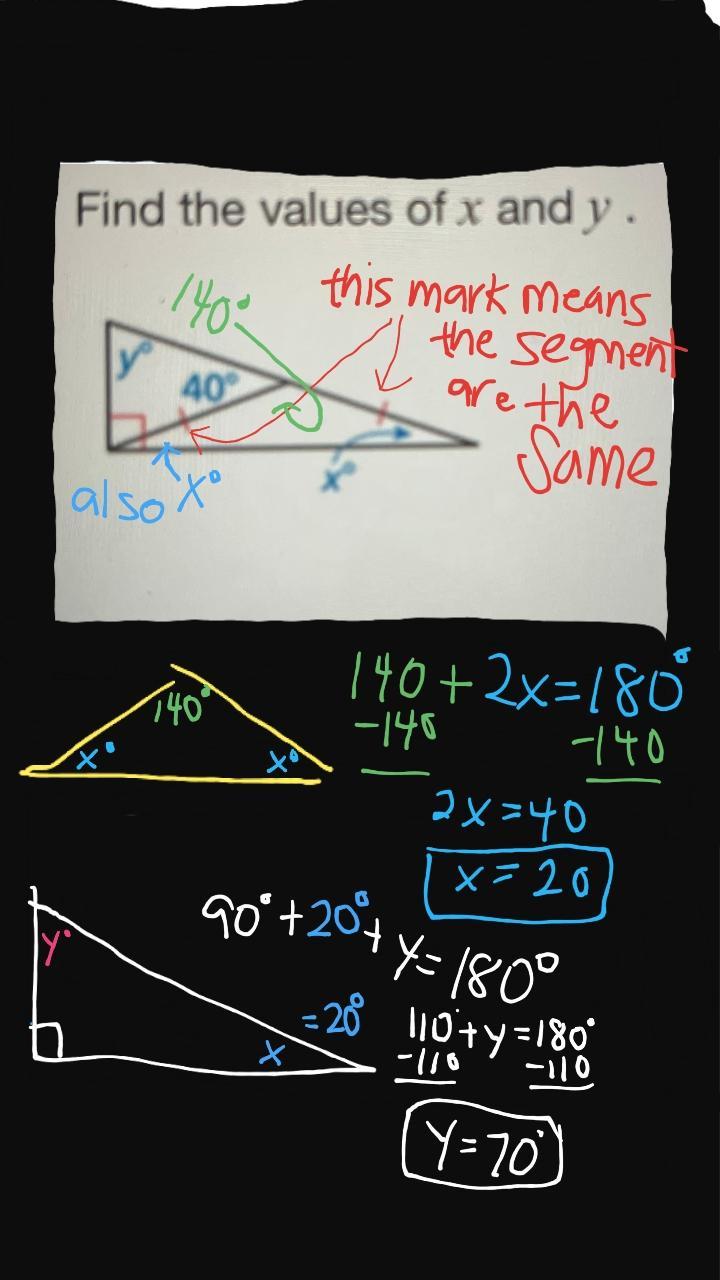 Find the values of x and y .
140°
this mark means
the segment
are the
same
y°
40°
x°
also x°
140°
x°
x°
140 + 2x = 180°
-140
-140
2x = 40
x = 20
y°
x
= 20°
90° + 20° + y = 180°
110° + y = 180°
-110
-110
y = 70°